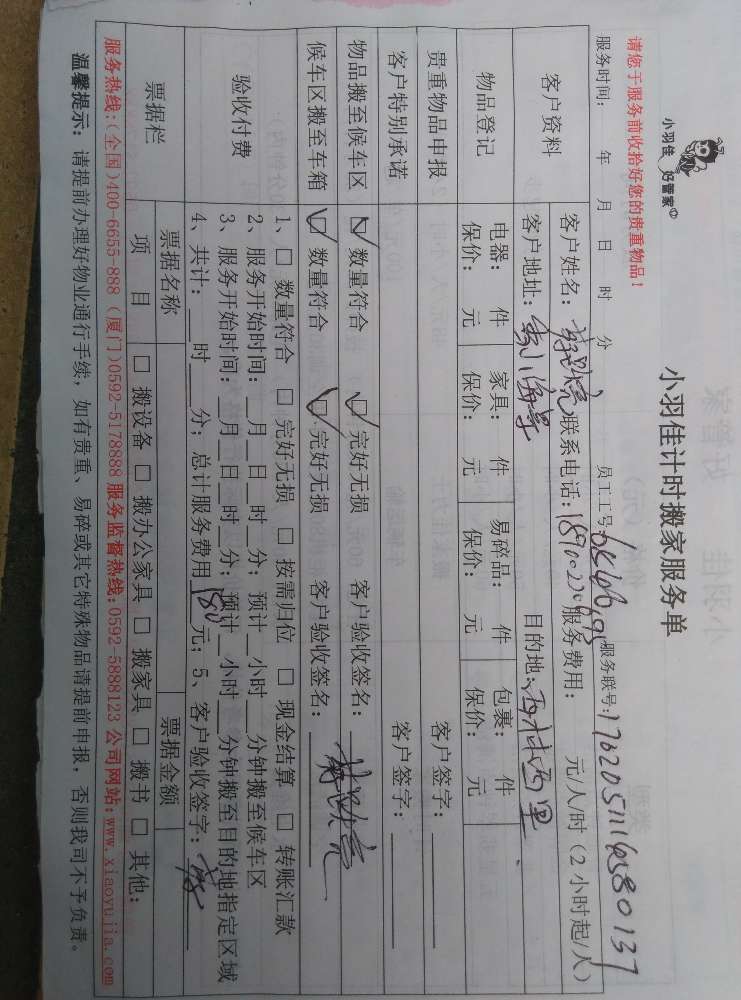 小羽佳 好管家
小羽佳计时搬家服务单
请您于服务前收拾好您的贵重物品！
服务时间： 年 月 日 时 分 员工工号 服务联号：
客户资料 客户姓名： 联系电话： 服务费用： 元/人/时（2小时起/人）
客户地址： 目的地：
物品登记 电器： 件 家具： 件 易碎品： 件 包裹： 件
保价： 元 保价： 元 保价： 元 保价： 元
贵重物品申报 客户签字：
客户特别承诺 客户签字：
物品搬至候车区 数量符合 完好无损 客户验收签名：
候车区搬至车箱 数量符合 完好无损 客户验收签名：
验收付费 1、□ 数量符合 □ 完好无损 □ 按需归位 □ 现金结算 □ 转账汇款
2、服务开始时间：__月__日__时__分；预计__小时__分钟搬至候车区
3、服务开始时间：__月__日__时__分；预计__小时__分钟搬至目的地指定区域
4、共计：__时__分；总计服务费用180元；5、客户验收签字：
票据栏 票据名称 票据金额
项 目 □ 搬设备 □ 搬办公家具 □ 搬家具 □ 搬书 □ 其他：
服务热线：（全国）400-6655-888（厦门）0592-5178888 服务监督热线：0592-5888123 公司网站：www.xiaoyujia.com
温馨提示：请提前办理好物业通行手续，如有贵重、易碎或其它特殊物品请提前申报，否则我司不予负责。